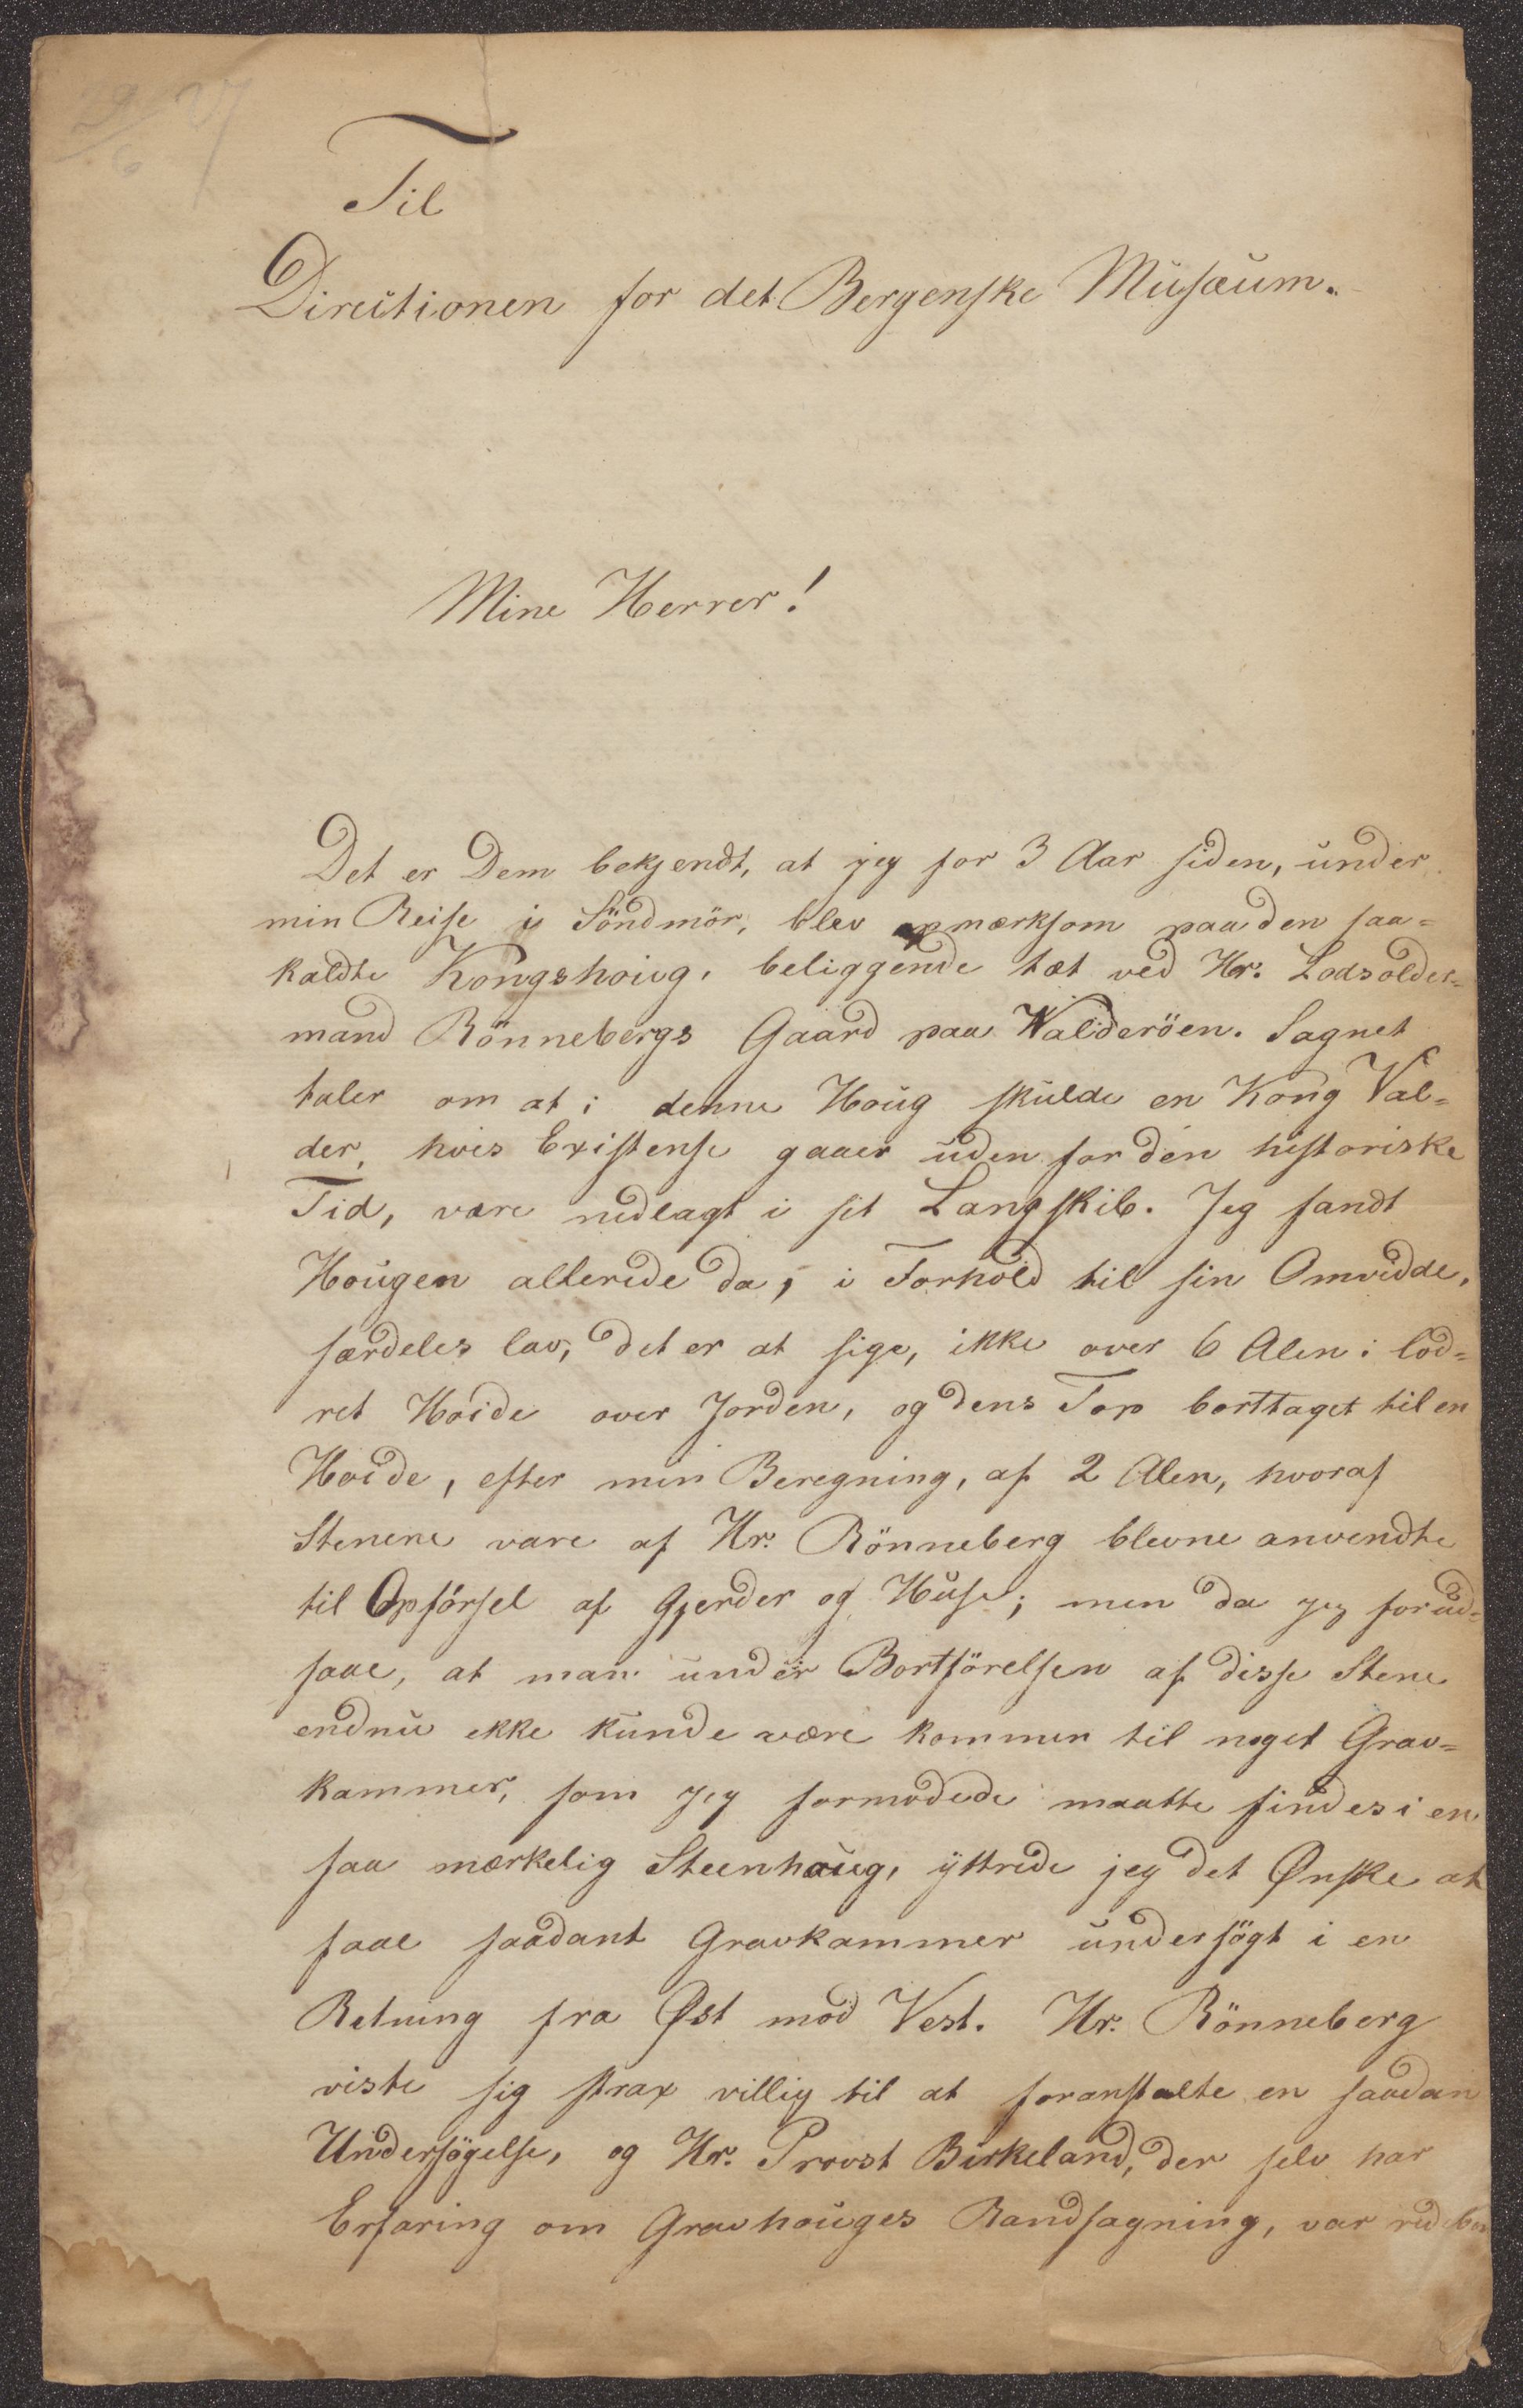 29/6 37
Til
Directionen for det Bergenske Musæum.
Mine Herrer!
Det er Dem bekjendt, at jeg for 3 Aar siden, under
min Reise i Söndmör, blev opmærksom paa den saa-
kaldte Kongshoug, beliggende tæt ved Hr. Lodsolder-
mand Rönnebergs Gaard paa Walderöen. Sagnet
taler om at i denne Houg skulde en Kong Val-
der, hvis Existense gaaer uden for den historiske
Tid, være nedlagt i sit Langskib. Jeg fandt
Hougen allerede da, i Forhold til sin Omvidde,
særdeles lav, det er at sige, ikke over 6 Alen i lod-
ret Höide over Jorden, og dens Top borttaget til en
Höide, efter min Beregning, af 2 Alen, hvoraf
Stenene vare af Hr. Rönneberg blevne anvendte
til Opförsel af Gjerder og Huse; men da jeg forud-
saae, at man under Bortförelsen af disse Stene
endnu ikke kunde være kommen til noget Grav-
kammer, som jeg formodede maatte findes i en
saa mærkelig Steenhaug, yttrede jeg det Ønske at
faae saadant Gravkammer undersögt i en
Retning fra Øst mod Vest. Hr. Rönneberg
viste sig strax villig til at foranstalte en saadan
Undersögelse, og Hr. Provst Birkeland, der selv har
Erfaring om Gravhouges Randsagning, var redebon